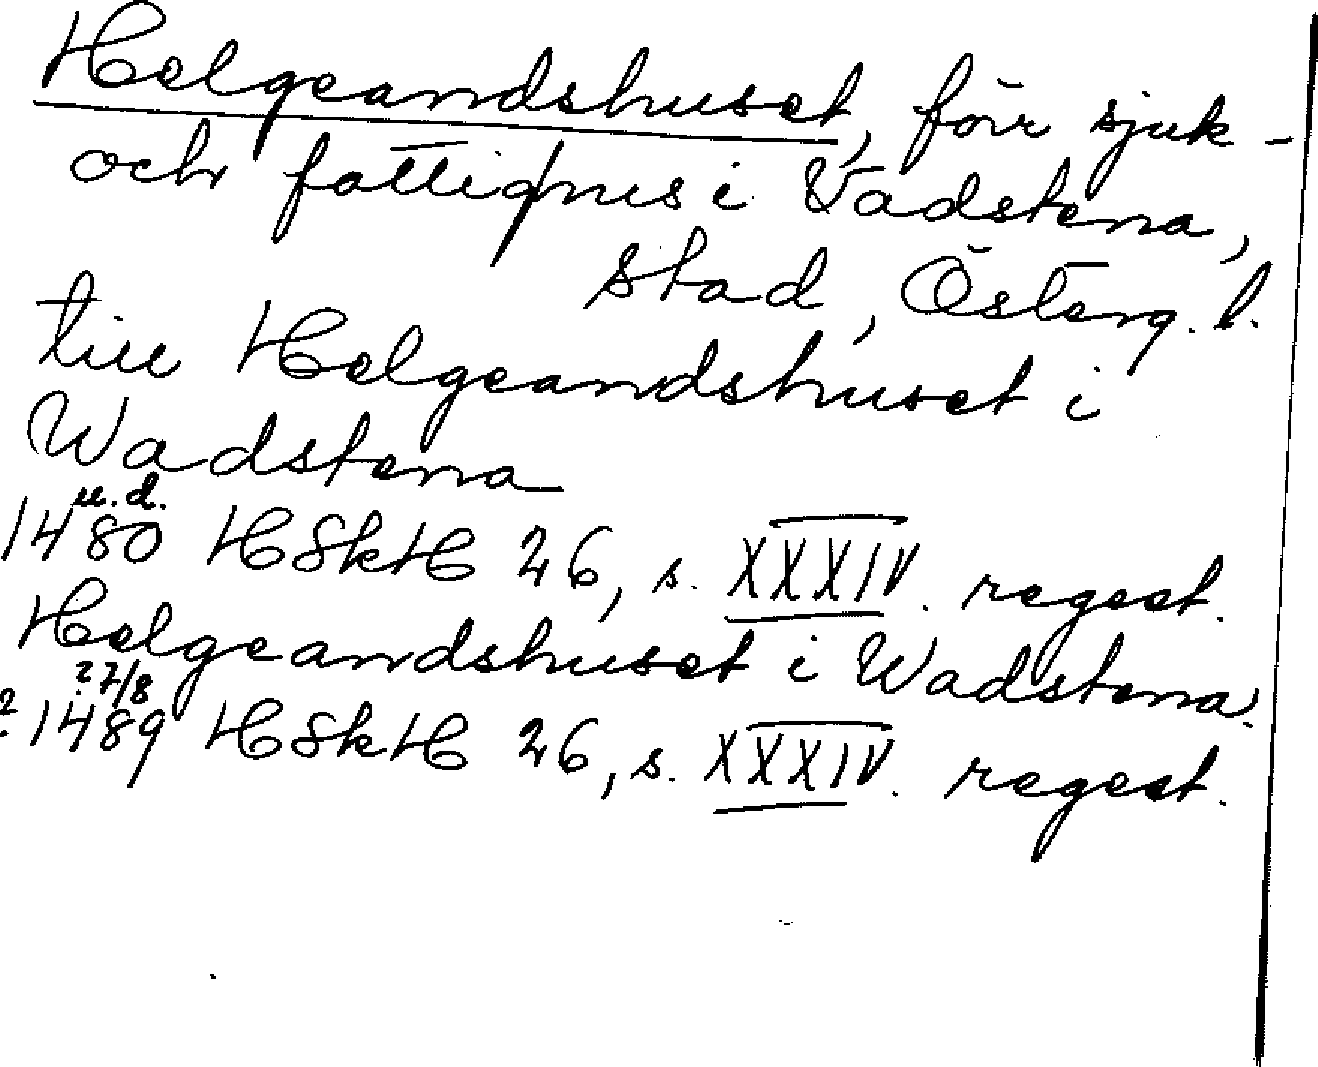 Helgeandshuset, förr sjuk-
och fattighus i Vadstena,
stad, Österg. l.
till Helgeandshuset i
Wadstena
u.d.
1480 HSkH 26, s. XXXIV. regest.
Helgeandshuset i Wadstena.
27/8
1489 HSkH 26, s. XXXIV. regest.